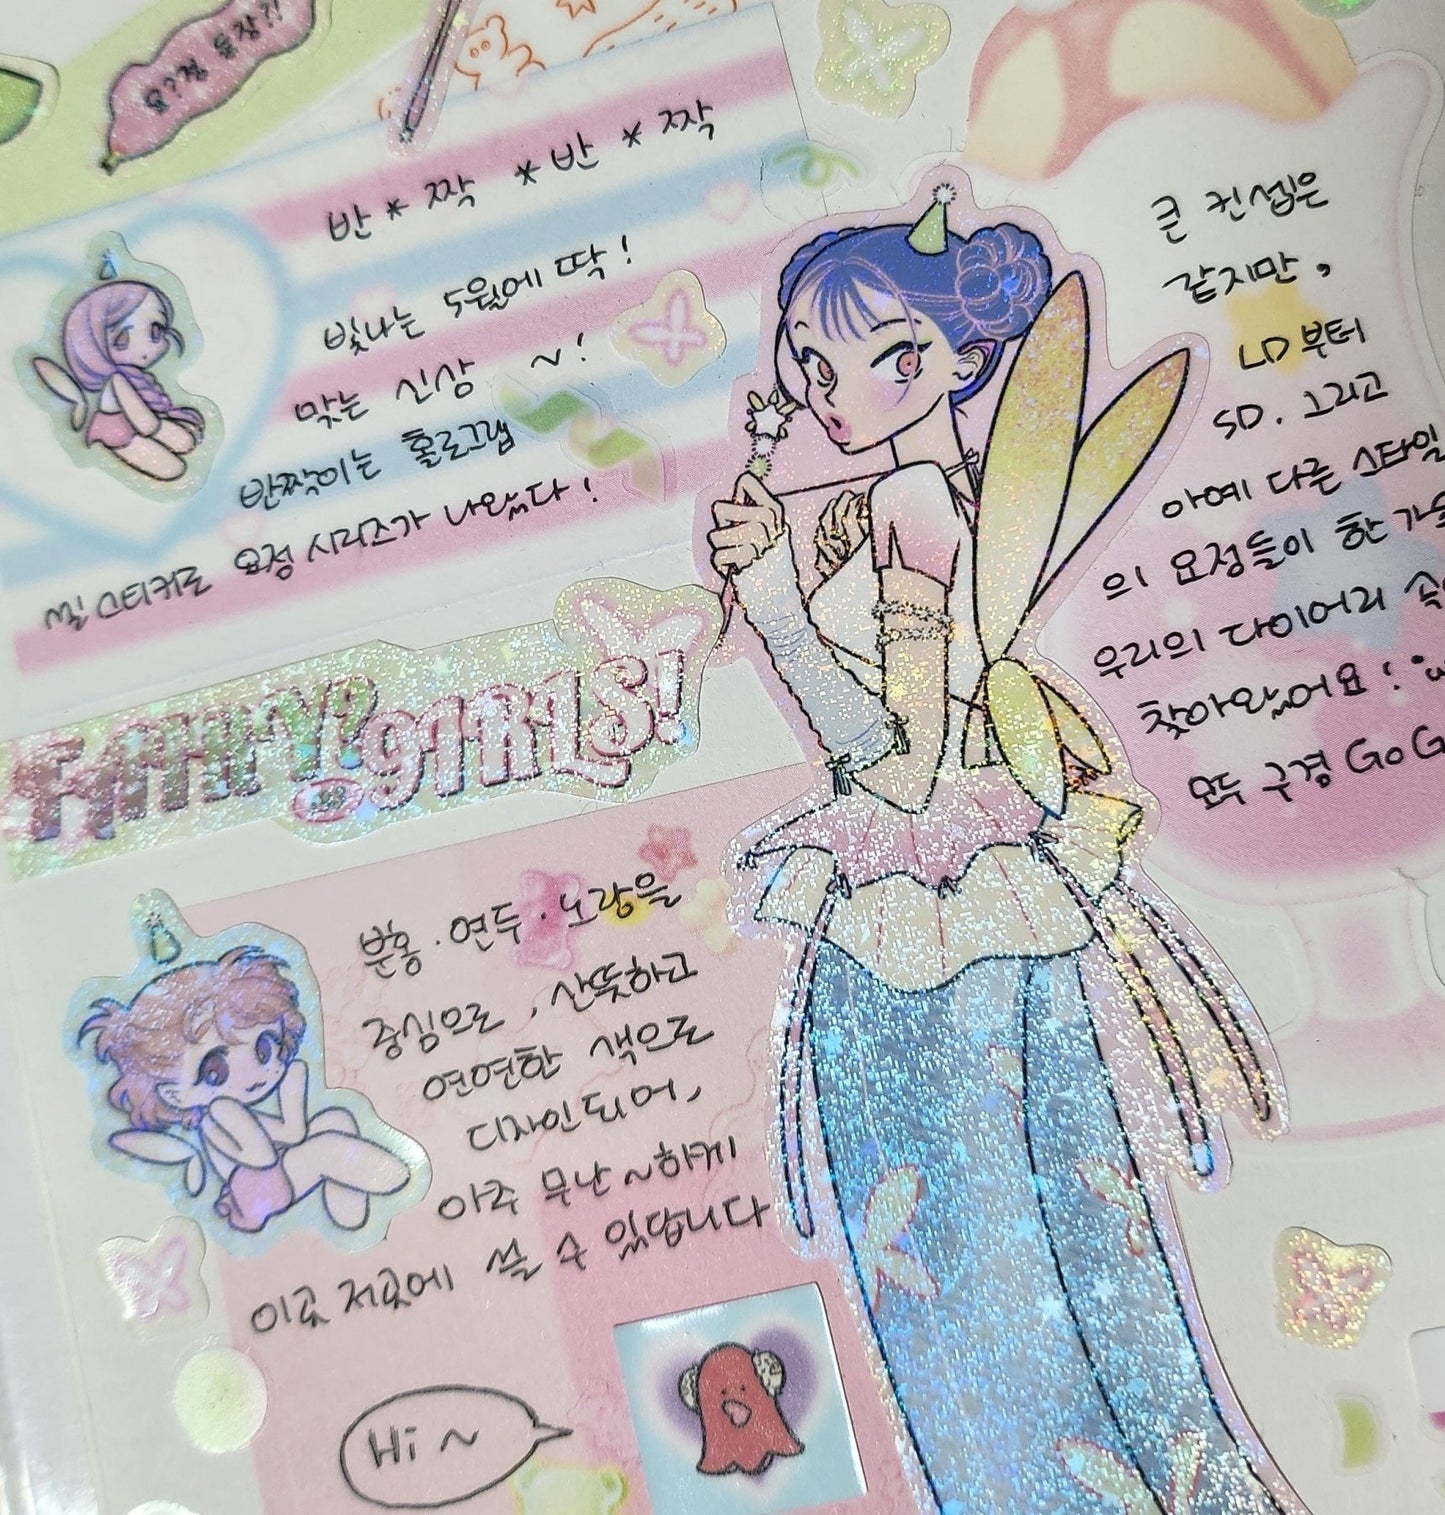 요??정 등장?!
반 * 짝 * 반 * 짝
빛나는 5월에 딱!
맞는 신상 ~!
반짝이는 홀로그램
씰스티커로 요정 시리즈가 나왔다!
FAIRY! GIRLS!
분홍 · 연두 · 노랑을
중심으로, 산뜻하고
연연한 색으로
디자인되어,
아주 무난~하게
이곳 저곳에 쓸 수 있답니다
Hi ~
큰 컨셉은
같지만,
LD부터
SD. 그리고
아예 다른 스타일
의 요정들이 한가득
우리의 다이어리 속
찾아왔어요!
모두 구경 GoG